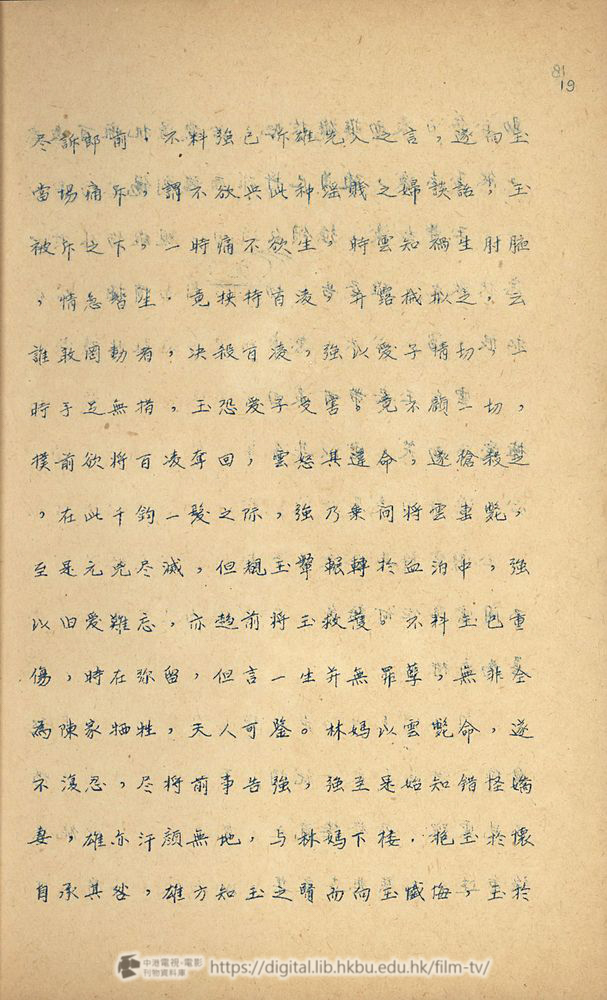 18
19
尽訴郎前，不料強已听雄兇父之言，遂向玉
當場痛斥，謂不欲與此种淫賤之婦談話，玉
被斥之下，一時痛不欲生，時雲知禍生肘腋
，情急智生，竟挾持百凌，并露械拟之，云
誰敢罔動者，决殺百凌，強以愛子情切，一
時手足無措，玉恐愛子受害，竟不顧一切，
撲前欲将百凌奪回，雲怒其違命，遂槍殺之
，在此千鈞一髮之际，強乃乘间将雲击斃，
至是元兇尽滅，但覩玉輾轉於血泊中，強
以旧愛難忘，亦趋前将玉救護。不料玉已重
傷，時在弥留，但言一生并無罪孽，無非全
為陳家牺牲，天人可鑒。林媽以雲斃命，遂
不復忍，尽将前事告強，強至是始知錯怪嬌
妻，雄亦汗顏無地，与林媽下楼，抱玉於懷
自承其咎，雄方知玉之賢而向玉懺悔，玉於
中港電視·電影
刊物資料庫
https://digital.lib.hkbu.edu.hk/film-tv/